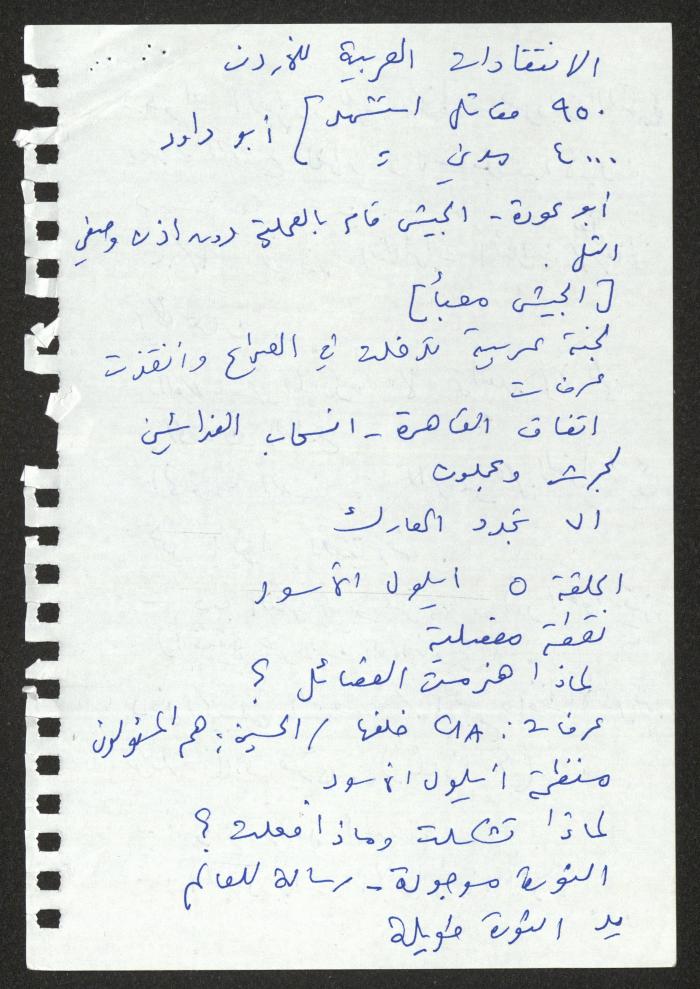 الانتقادات العربية للأردن
٩٥٠ مقاتل استشهد ] أبو داود
٤٠٠٠ مدني =
أبو عودة - الجيش قام بالعملية دون إذن وصفي
التل.
[الجيش معبأ]
لجنة عربية تدخلت في الصراع وانقذت
عرفات
اتفاق القاهرة - انسحاب الفدائيين
لجرش وعجلون
تجدد المعارك
الحلقة ٥ ايلول الأسود
نقطة مفصلية
لماذا هزمت الفصائل ؟
عرفات: CIA خلفها / الحسين: هم المسؤولون
منظمة أيلول الأسود
لماذا تشكلت وماذا فعلت ؟
الثورة موجودة - رسالة للعالم
يد الثورة طويلة